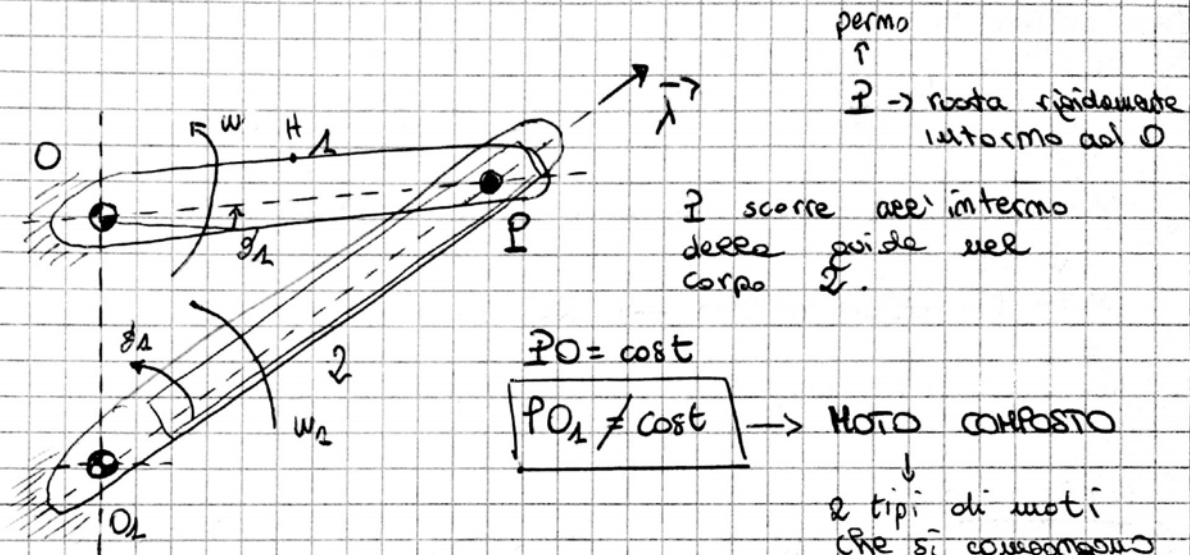 perno
↑
P → ruota rigidamente
intorno ad O
P scorre all'interno
della guida nel
corpo 2.
O
ω
H
1
λ
ϑ1
P
ϑ1
2
ω1
O1
PO = cost
PO1 ≠ cost → MOTO COMPOSTO
↓
2 tipi di moti
che si compongono